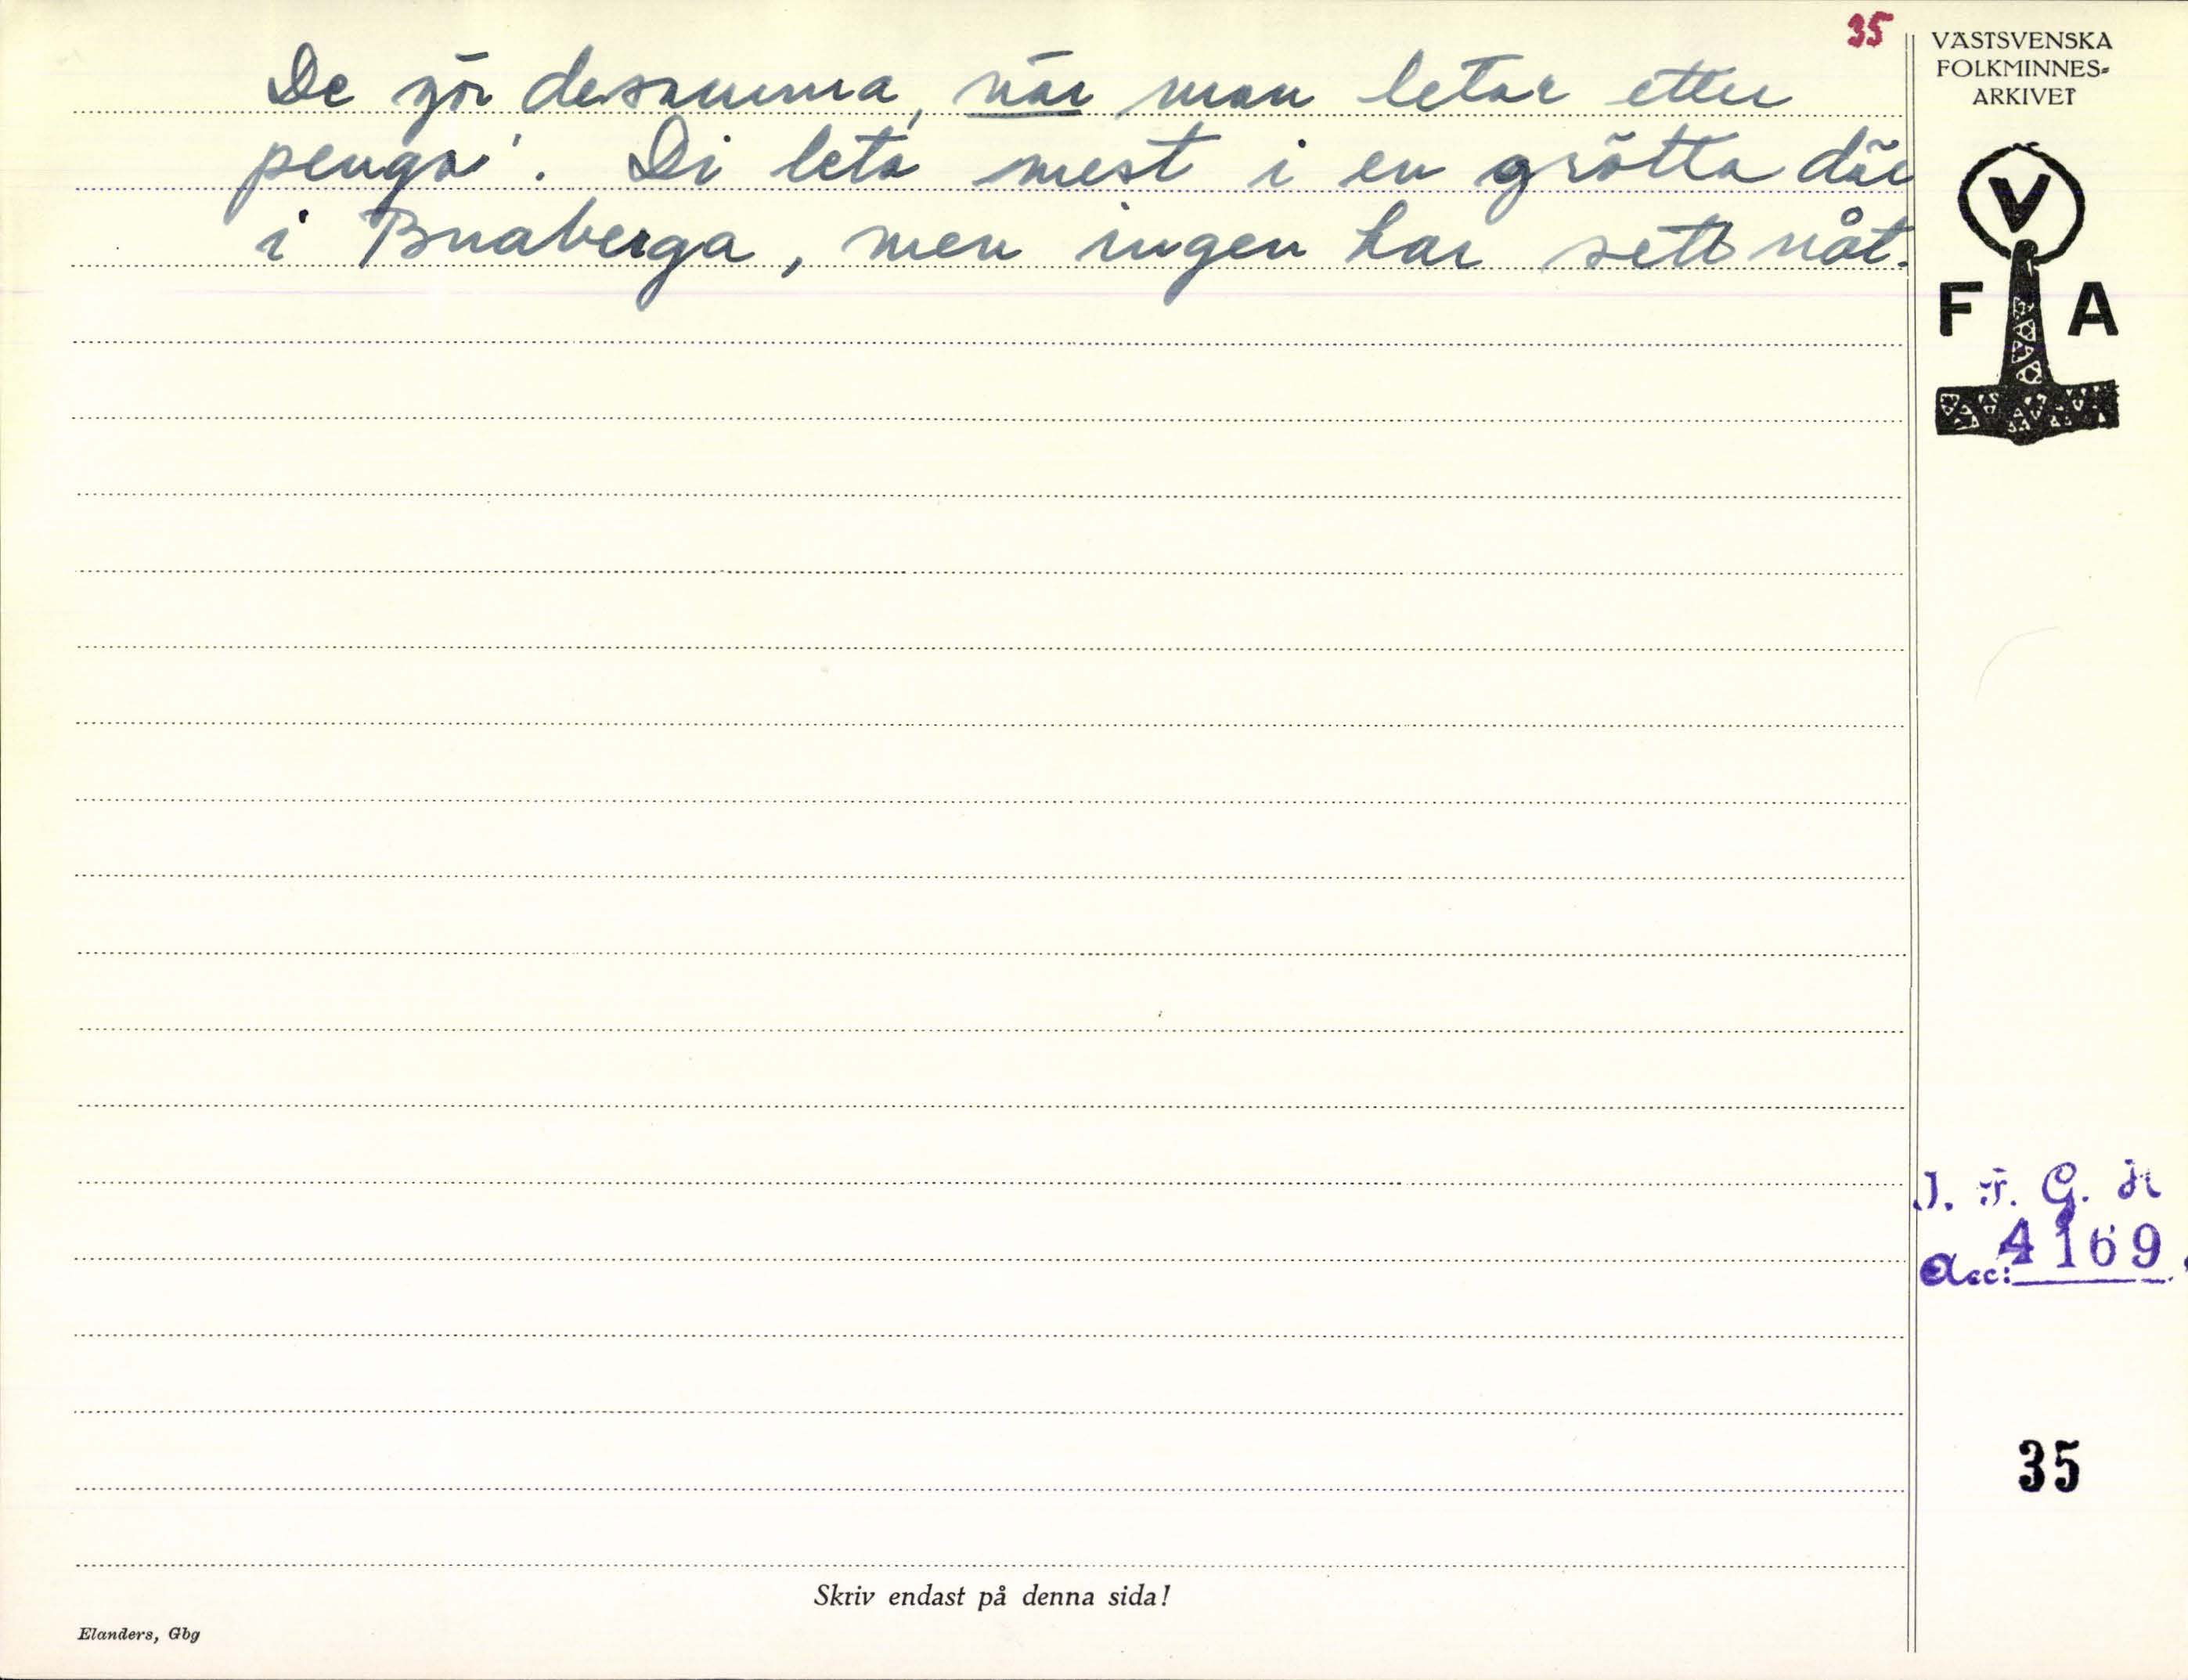 35
De gör desamma, när man letar etter
penga'. Di leta mest i en gråtta där
i Buaberga, men ingen har sett nåt.
VÄSTSVENSKA
FOLKMINNES-
ARKIVET
V
F A
I. F. G. H
Acc: 4169.
35
Skriv endast på denna sida!
Elanders, Gbg